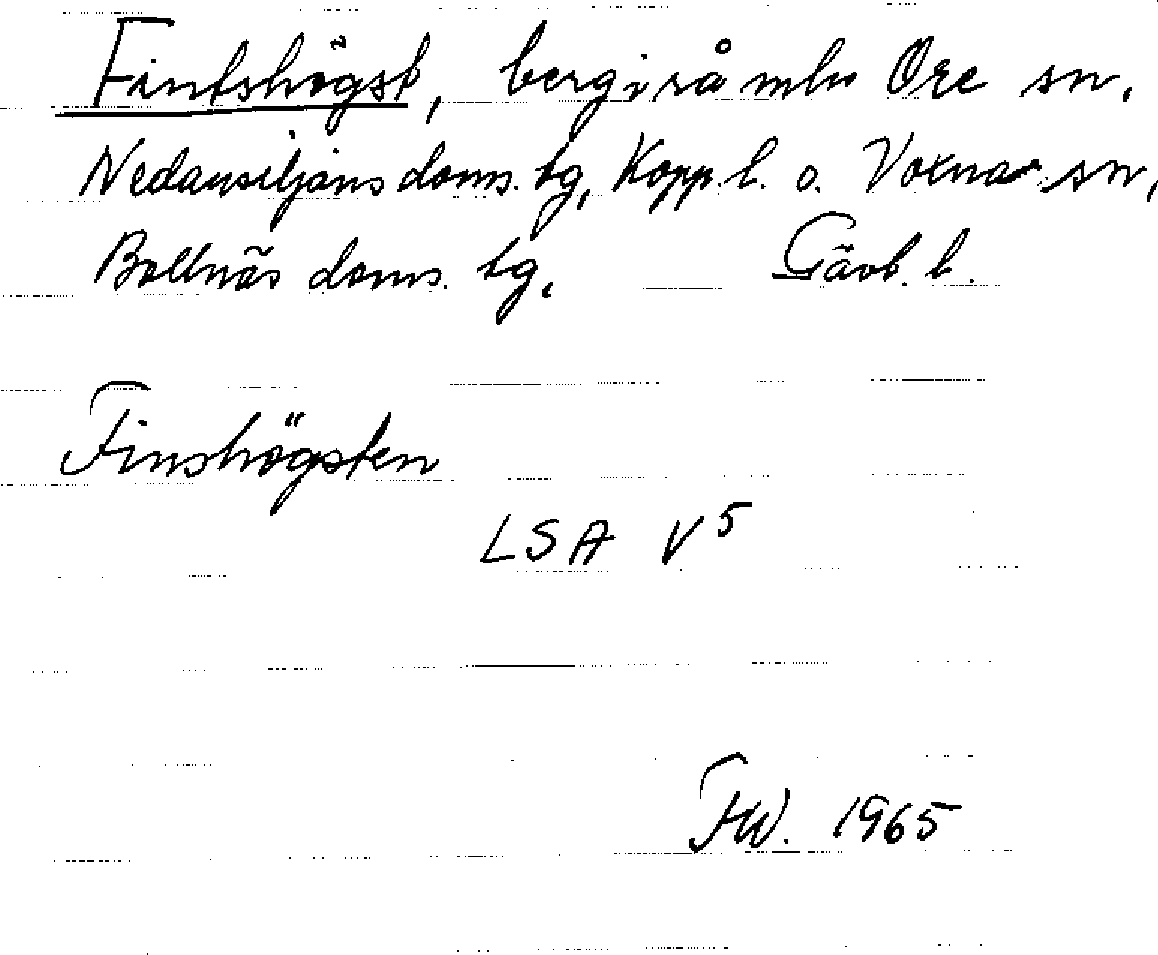 Fintshögst, berg i rå mln Ore sn,
Nedansiljans doms. tg, Kopp. l. o. Voxna sn,
Bollnäs doms. tg, Gävb. l.
Finshögsten
LSA V5
FW. 1965